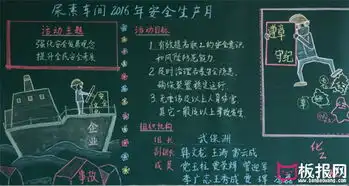 尿素车间2016年安全生产月
活动主题
强化安全发展观念
提升全民安全素质
活动目标
1. 有效提高职工的安全意识
和风险防范能力
2. 及时治理各类安全隐患
确保装置稳定运行
3. 无重伤及以上人身伤害
其它一般及以上事故发生
组织机构
组长 武保洲
副组长 韩文龙 王涛
成员
李广志 王为成
安全
企业
事故
遵章
守纪
化
板报网
www.banbaowang.com